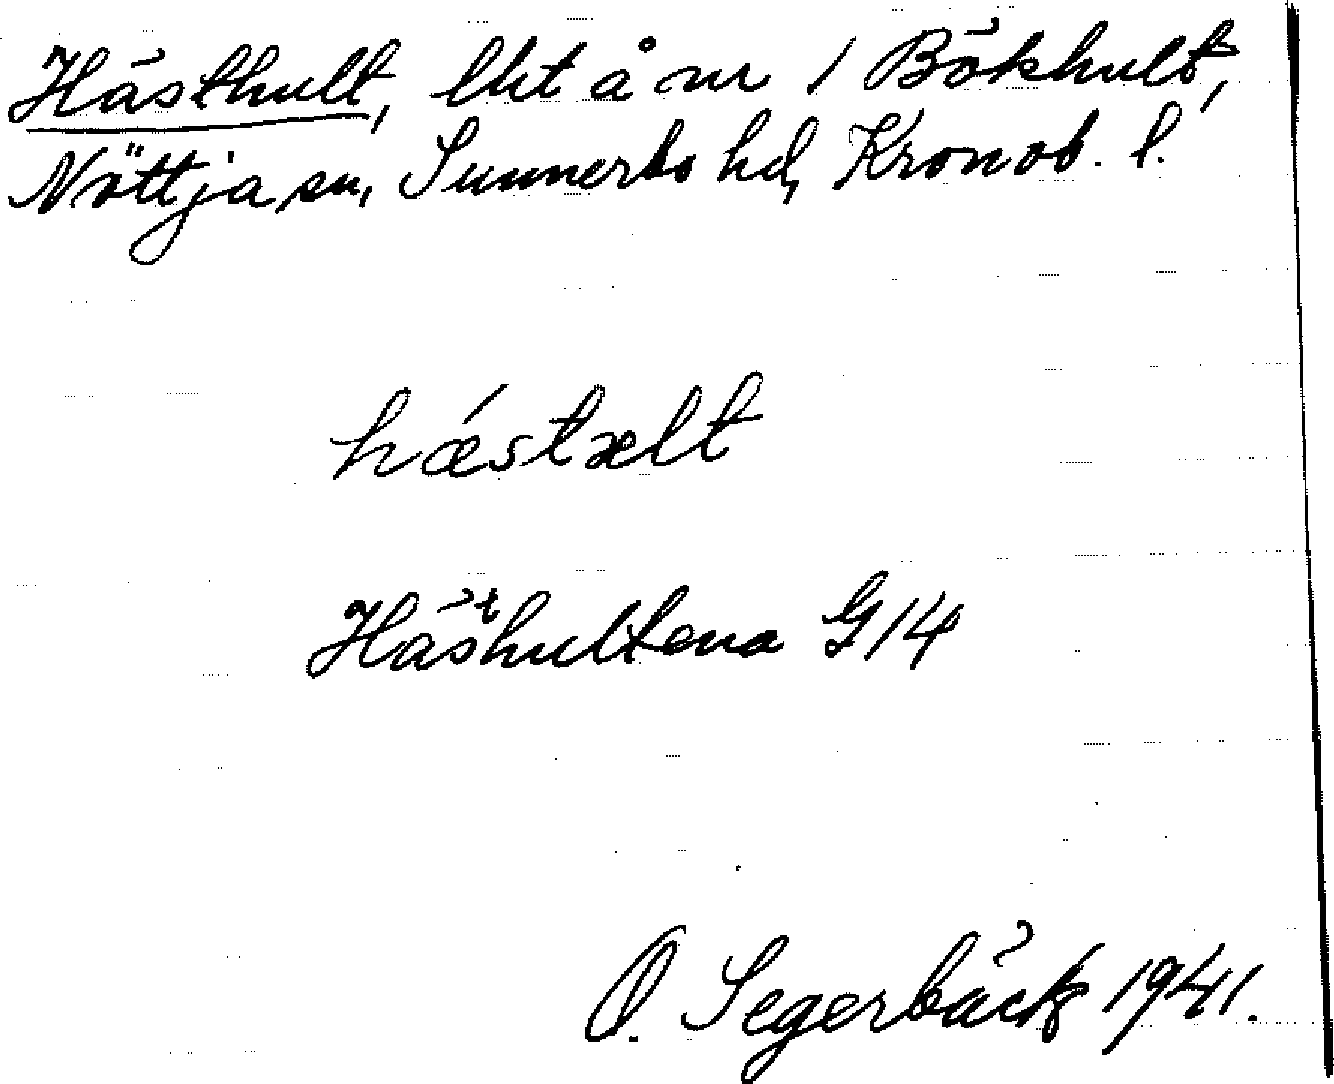 Hästhult, lht å nr 1 Bökhult,
Nöttja sn, Sunnerbo hd, Kronob. l.
hǽstælt
Hästhultena G14
O. Segerbäck 1941.